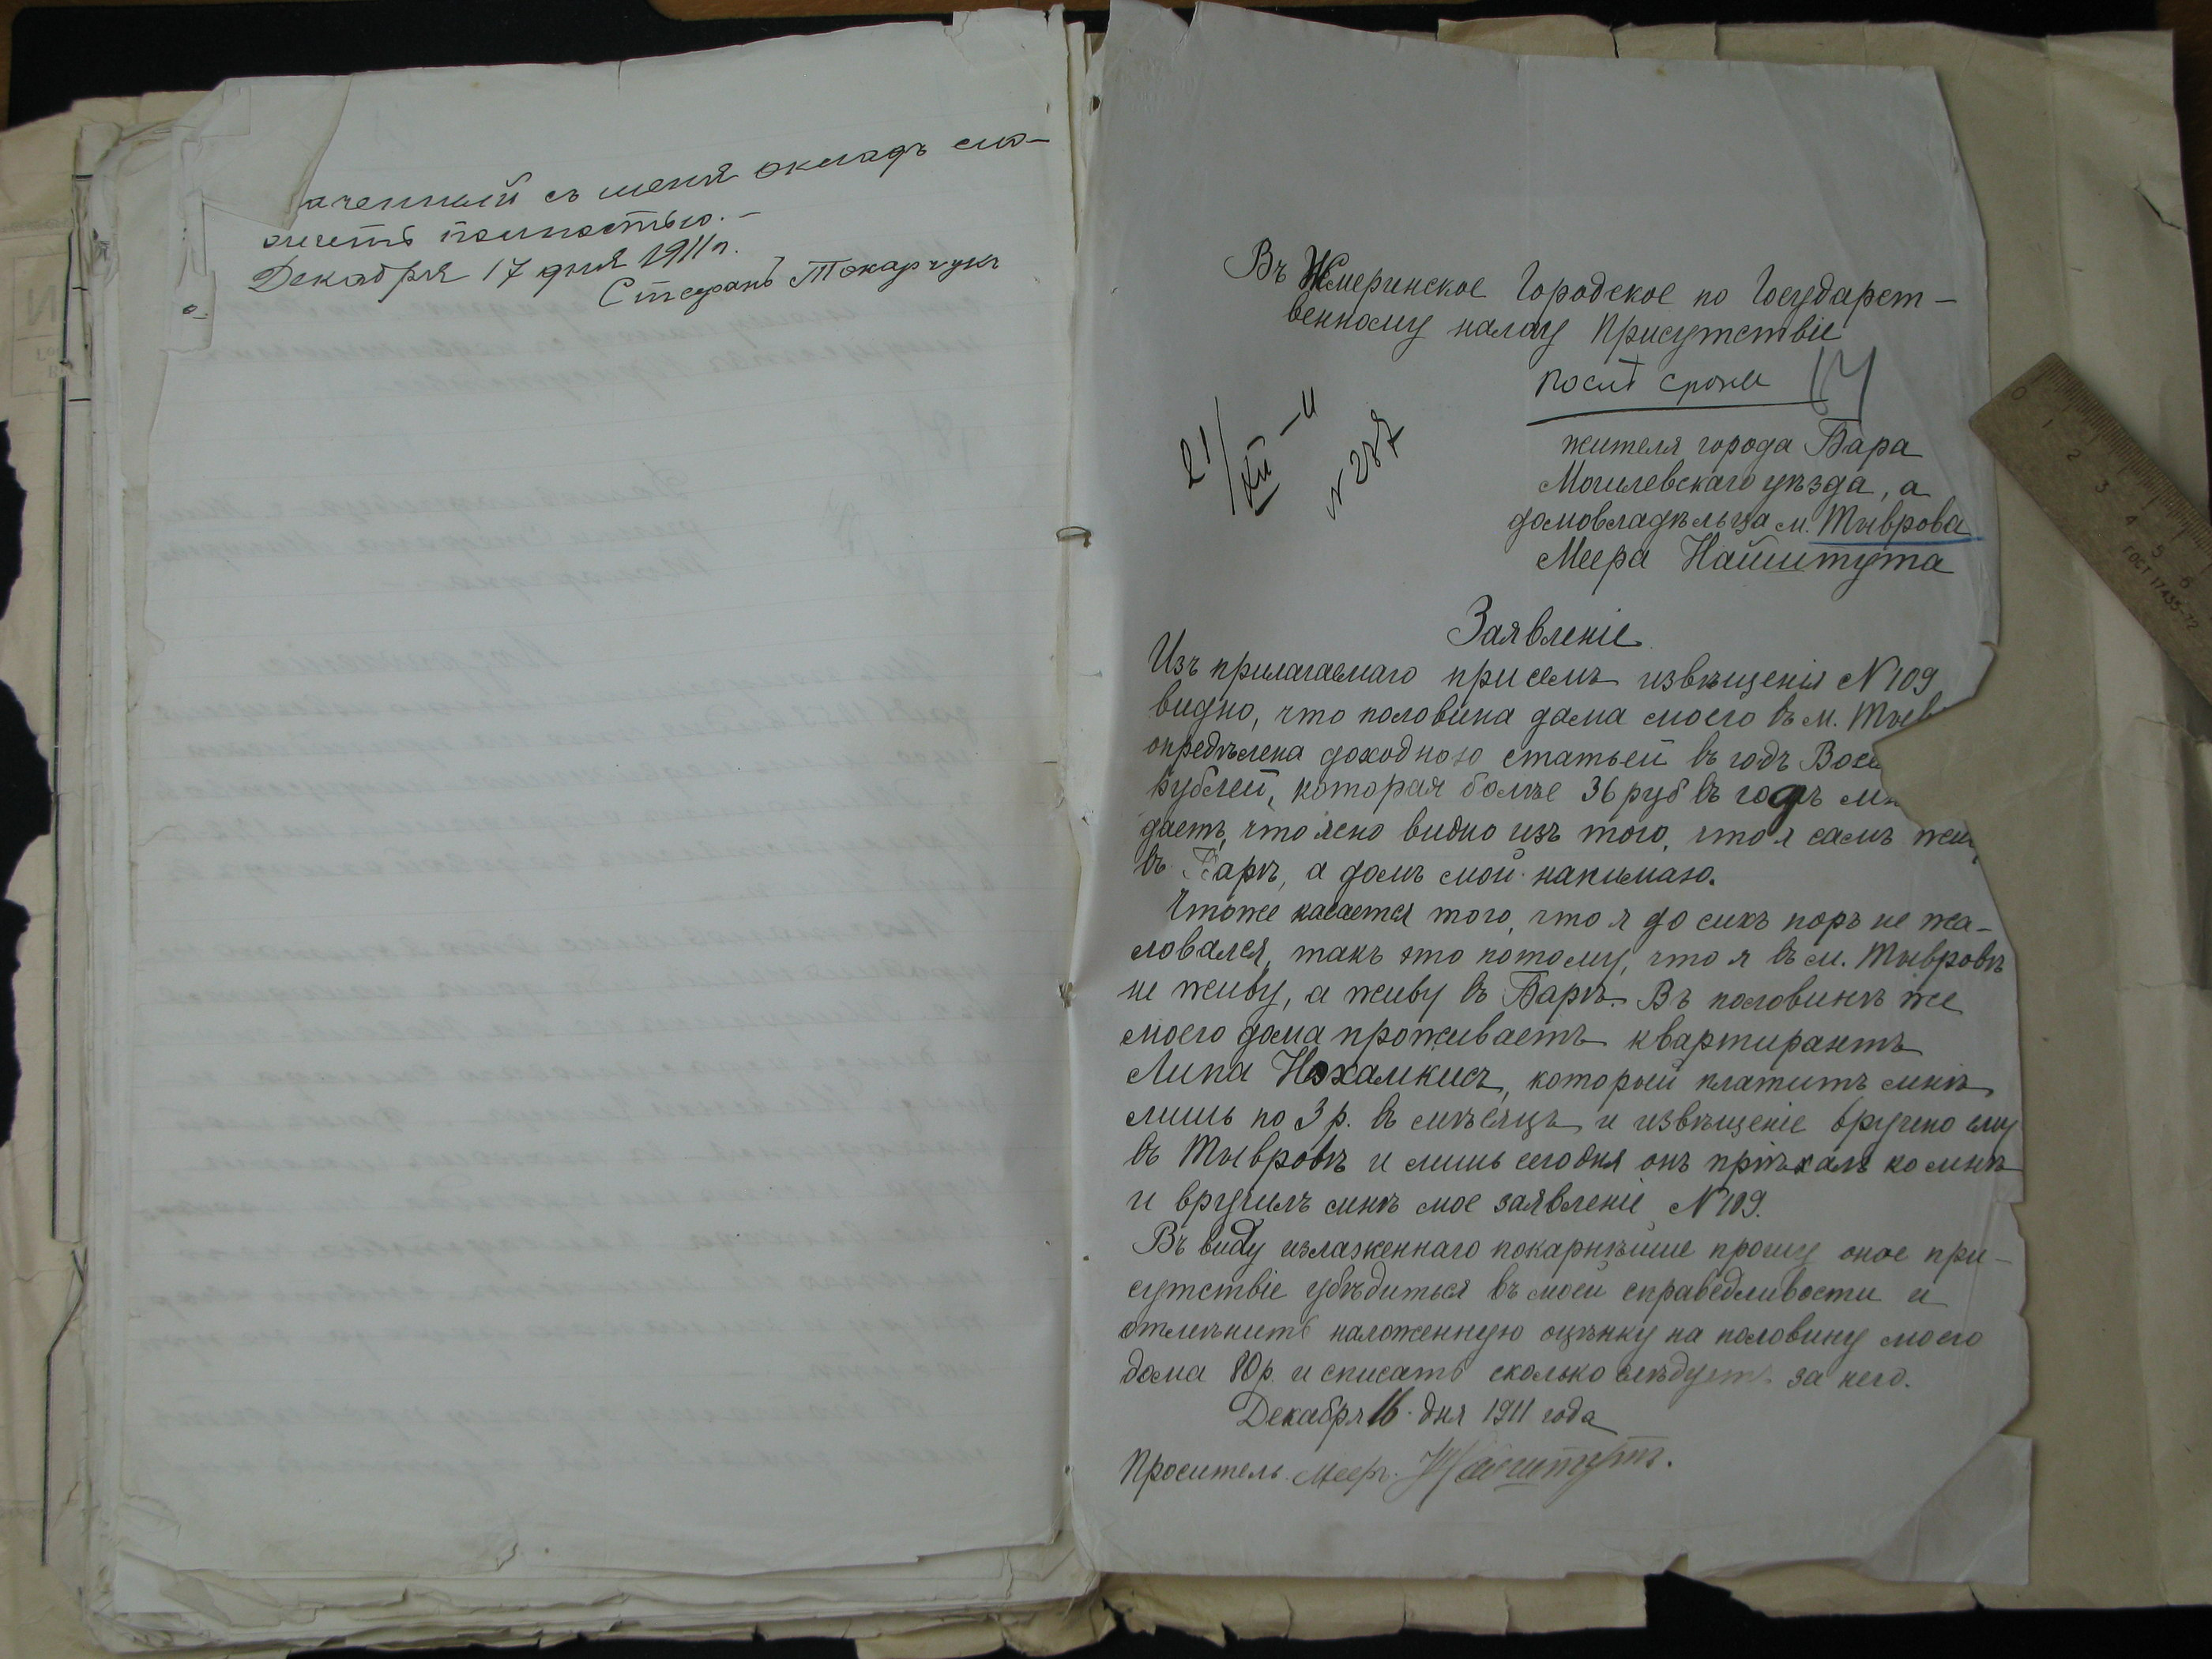 аченный съ меня окладъ сло-
жить полностью. –
Декабря 17 дня 1911 г.
Стефанъ Токарчукъ
Въ Жмеринское Городское по Государст-
венному налогу Присутствіе
послѣ срока
21/XII – 11
N 287
жителя города Бара
Могилевскаго уѣзда, а
домовладѣльца м. Тыврова
Меера Найштута
Заявленіе
Изъ прилагаемаго присемъ извѣщенія N 109
видно, что половина дома моего въ м. Тыв
опредѣлена доходною статьей въ годъ Восе
рублей, которая болѣе 36 руб въ годъ мн
даетъ, что ясно видно изъ того, что я самъ жи
въ Барѣ, а домъ мой нанимаю.
Чтоже касается того, что я до сихъ поръ не жа-
ловался, такъ это потому, что я въ м. Тывровѣ
не живу, а живу въ Барѣ. Въ половинѣ же
моего дома проживаетъ квартирантъ
Липа Нохамкисъ, который платитъ мнѣ
лишь по 3 р. въ мѣсяцъ и извѣщеніе вручено ему
въ Тывровѣ и лишь сегодня онъ пріѣхалъ ко мнѣ
и вручилъ мнѣ мое заявленіе N 109.
Въ виду изложеннаго покорнѣйше прошу оное при-
сутствіе убѣдиться въ моей справедливости и
отмѣнить наложенную оцѣнку на половину моего
дома 80 р. и списать сколько слѣдуетъ за него.
Декабря 16 дня 1911 года
Проситель Мееръ Найштутъ.
0 1 2 3 4 5 6
ГОСТ 17435-72